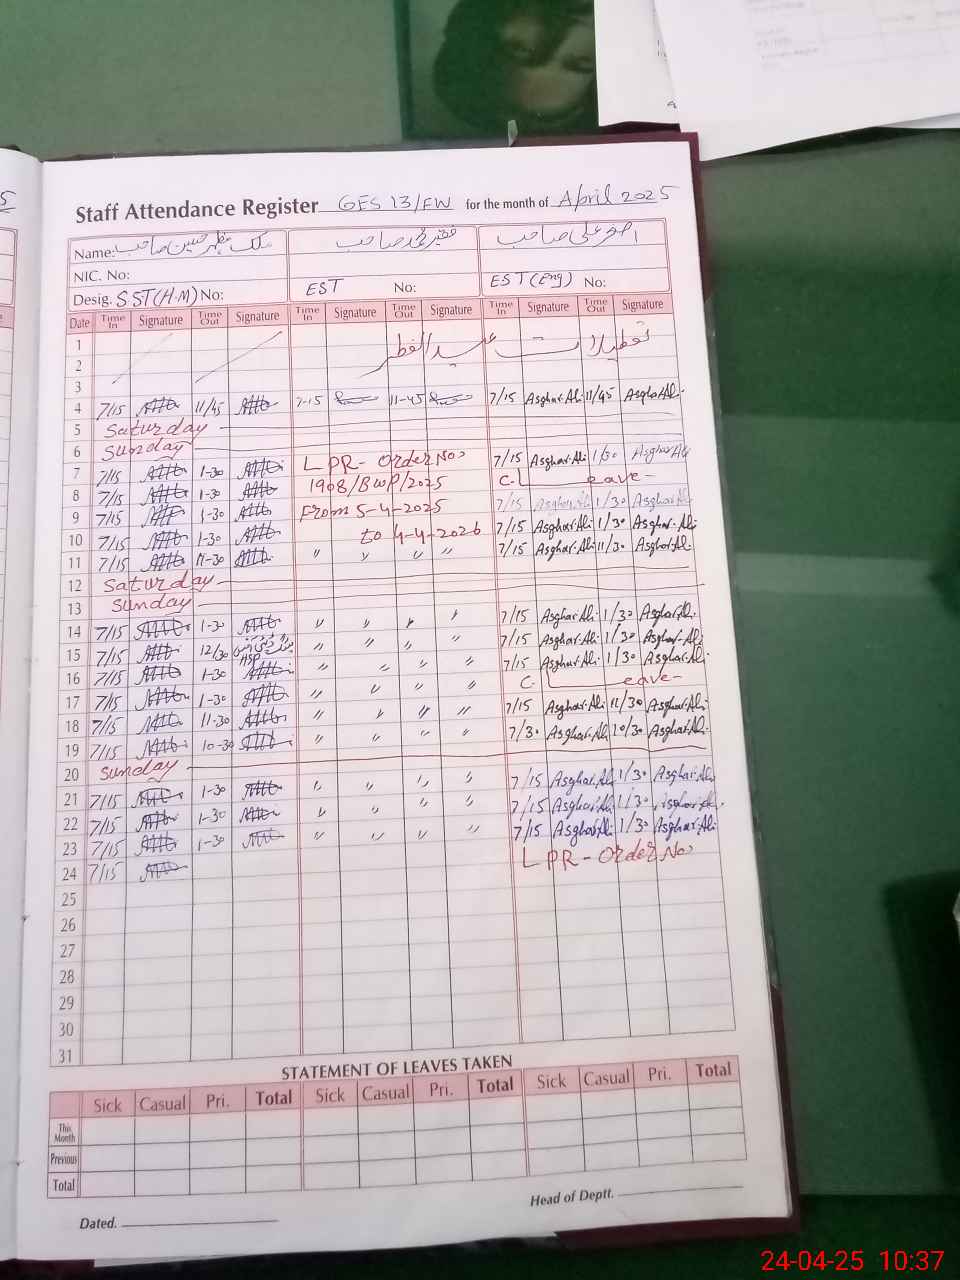 Staff Attendance Register GES 13/FW for the month of April 2025
Name: ملک مظہر حسین صاحب فقیر محمد صاحب اصغر علی صاحب
NIC. No:
Desig. SST(H.M) No: EST No: EST (Eng) No:
Date Time In Signature Time Out Signature Time In Signature Time Out Signature Time In Signature Time Out Signature
1 تعطیلات عید الفطر
2
3
4 7/15 11/45 7-15 11-45 7/15 Asghar.Ali 11/45 Asghar.Ali
5 Saturday
6 Sunday
7 7/15 1-30 LPR- Order No 7/15 Asghar.Ali 1/30 Asghar.Ali
8 7/15 1-30 1908/BWP/2025 C. Leave-
9 7/15 1-30 From 5-4-2025 7/15 Asghar.Ali 1/30 Asghar.Ali
10 7/15 1-30 to 4-4-2026 7/15 Asghar.Ali 1/30 Asghar.Ali
11 7/15 11-30 " " " " 7/15 Asghar.Ali 11/30 Asghar.Ali
12 Saturday
13 Sunday
14 7/15 1-30 " " " " 7/15 Asghar.Ali 1/30 Asghar.Ali
15 7/15 12/30 " " " " 7/15 Asghar.Ali 1/30 Asghar.Ali
16 7/15 1-30 " " " " 7/15 Asghar.Ali 1/30 Asghar.Ali
17 7/15 1-30 " " " " C. Leave-
18 7/15 11-30 " " " " 7/15 Asghar.Ali 11/30 Asghar.Ali
19 7/15 10-30 " " " " 7/30 Asghar.Ali 10/30 Asghar.Ali
20 Sunday
21 7/15 1-30 " " " " 7/15 Asghar.Ali 1/30 Asghar.Ali
22 7/15 1-30 " " " " 7/15 Asghar.Ali 1/30 Asghar.Ali
23 7/15 1-30 " " " " 7/15 Asghar.Ali 1/30 Asghar.Ali
24 7/15 LPR- Order No
25
26
27
28
29
30
31
STATEMENT OF LEAVES TAKEN
Sick Casual Pri. Total Sick Casual Pri. Total Sick Casual Pri. Total
This Month
Previous
Total
Dated. Head of Deptt.
24-04-25 10:37